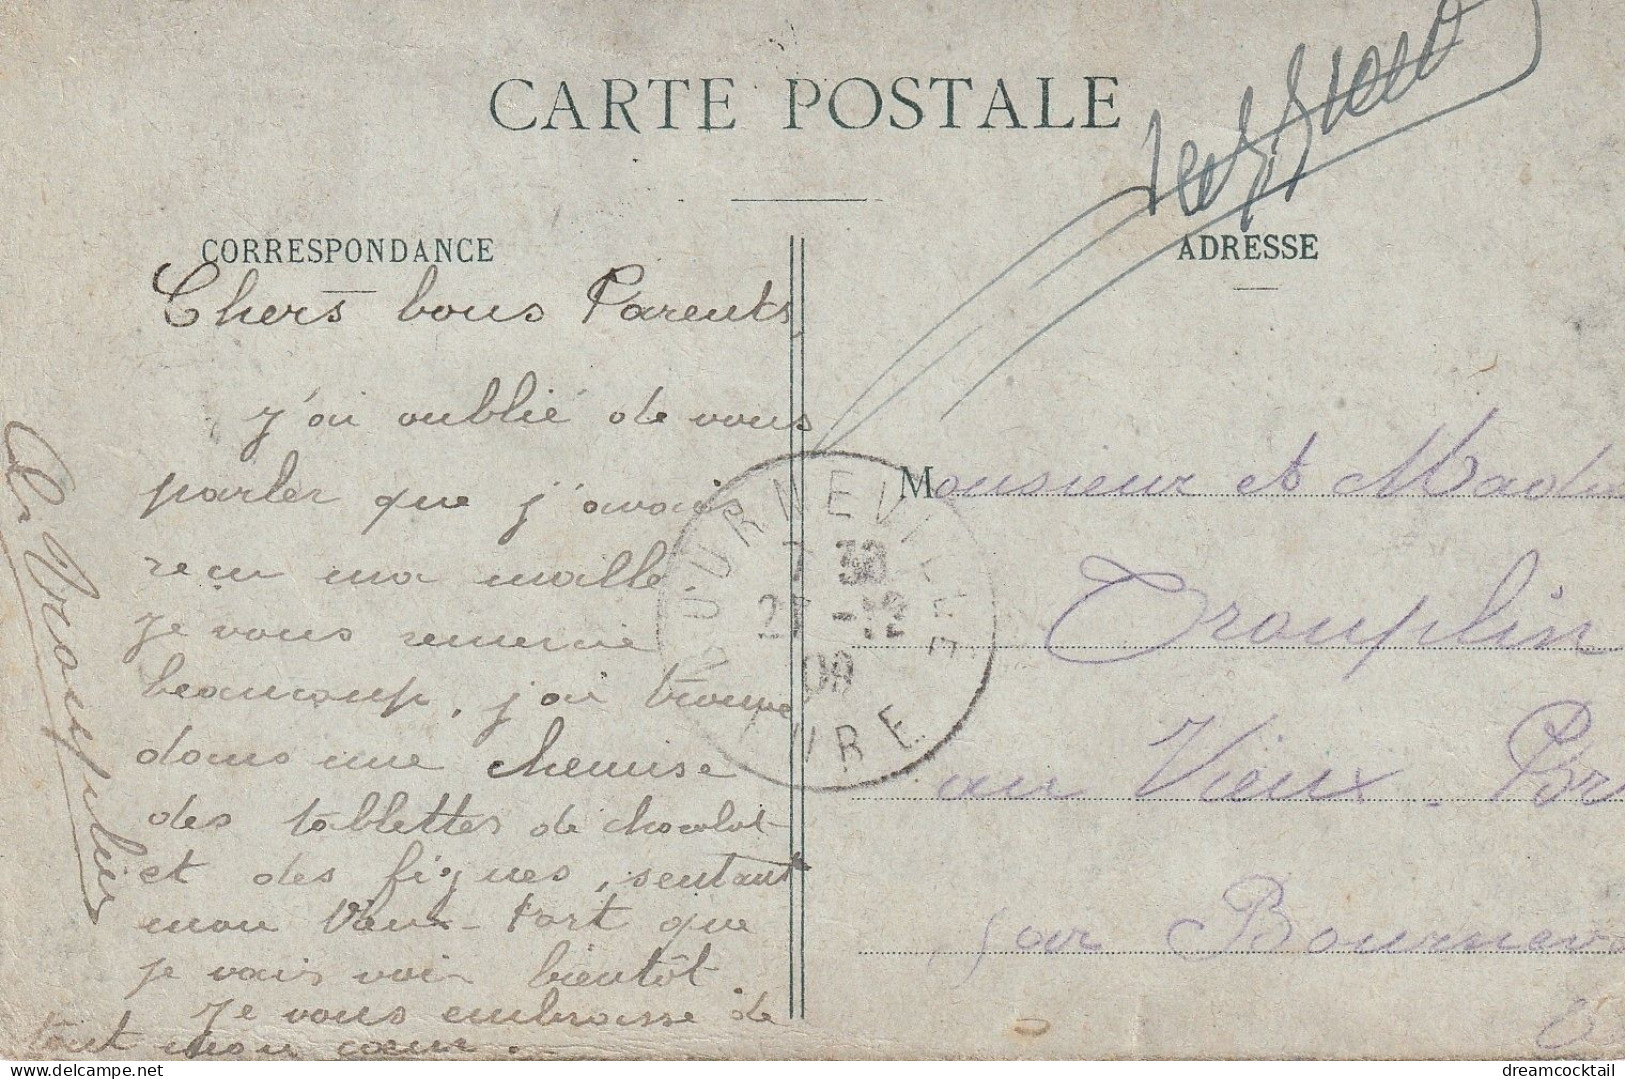 CARTE POSTALE
CORRESPONDANCE
ADRESSE
Chers bons Parents
J'ai oublié de vous
parler que j'avais
reçu ma malle.
Je vous remercie
beaucoup, j'ai trouvé
dans une chemise
des tablettes de chocolat
et des figues, sentant
mon Vieux-Port que
je vais voir bientôt.
Je vous embrasse de
tout mon cœur.
Trouplin
BOURNEVILLE
7 30
21 -12
08
EURE
Monsieur et Mada
Trouplin
au Vieux-Por
par Bournev
dreamcocktail